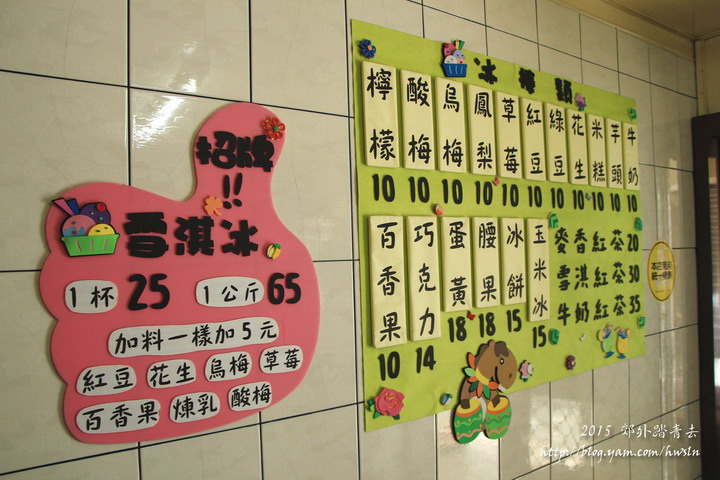 招牌!!
雪淇冰
1杯 25 1公斤 65
加料一樣加5元
紅豆 花生 烏梅 草莓
百香果 煉乳 酸梅
冰棒類
檸檬 10
酸梅 10
烏梅 10
鳳梨 10
草莓 10
紅豆 10
綠豆 10
花生 10
米糕 10
芋頭 10
牛奶 10
百香果 10
巧克力 14
蛋黃 18
腰果 18
冰餅 15
玉米冰 15
麥香紅茶20
雪淇紅茶30
牛奶紅茶35
2015 郊外踏青去
http://blog.yam.com/hwsln